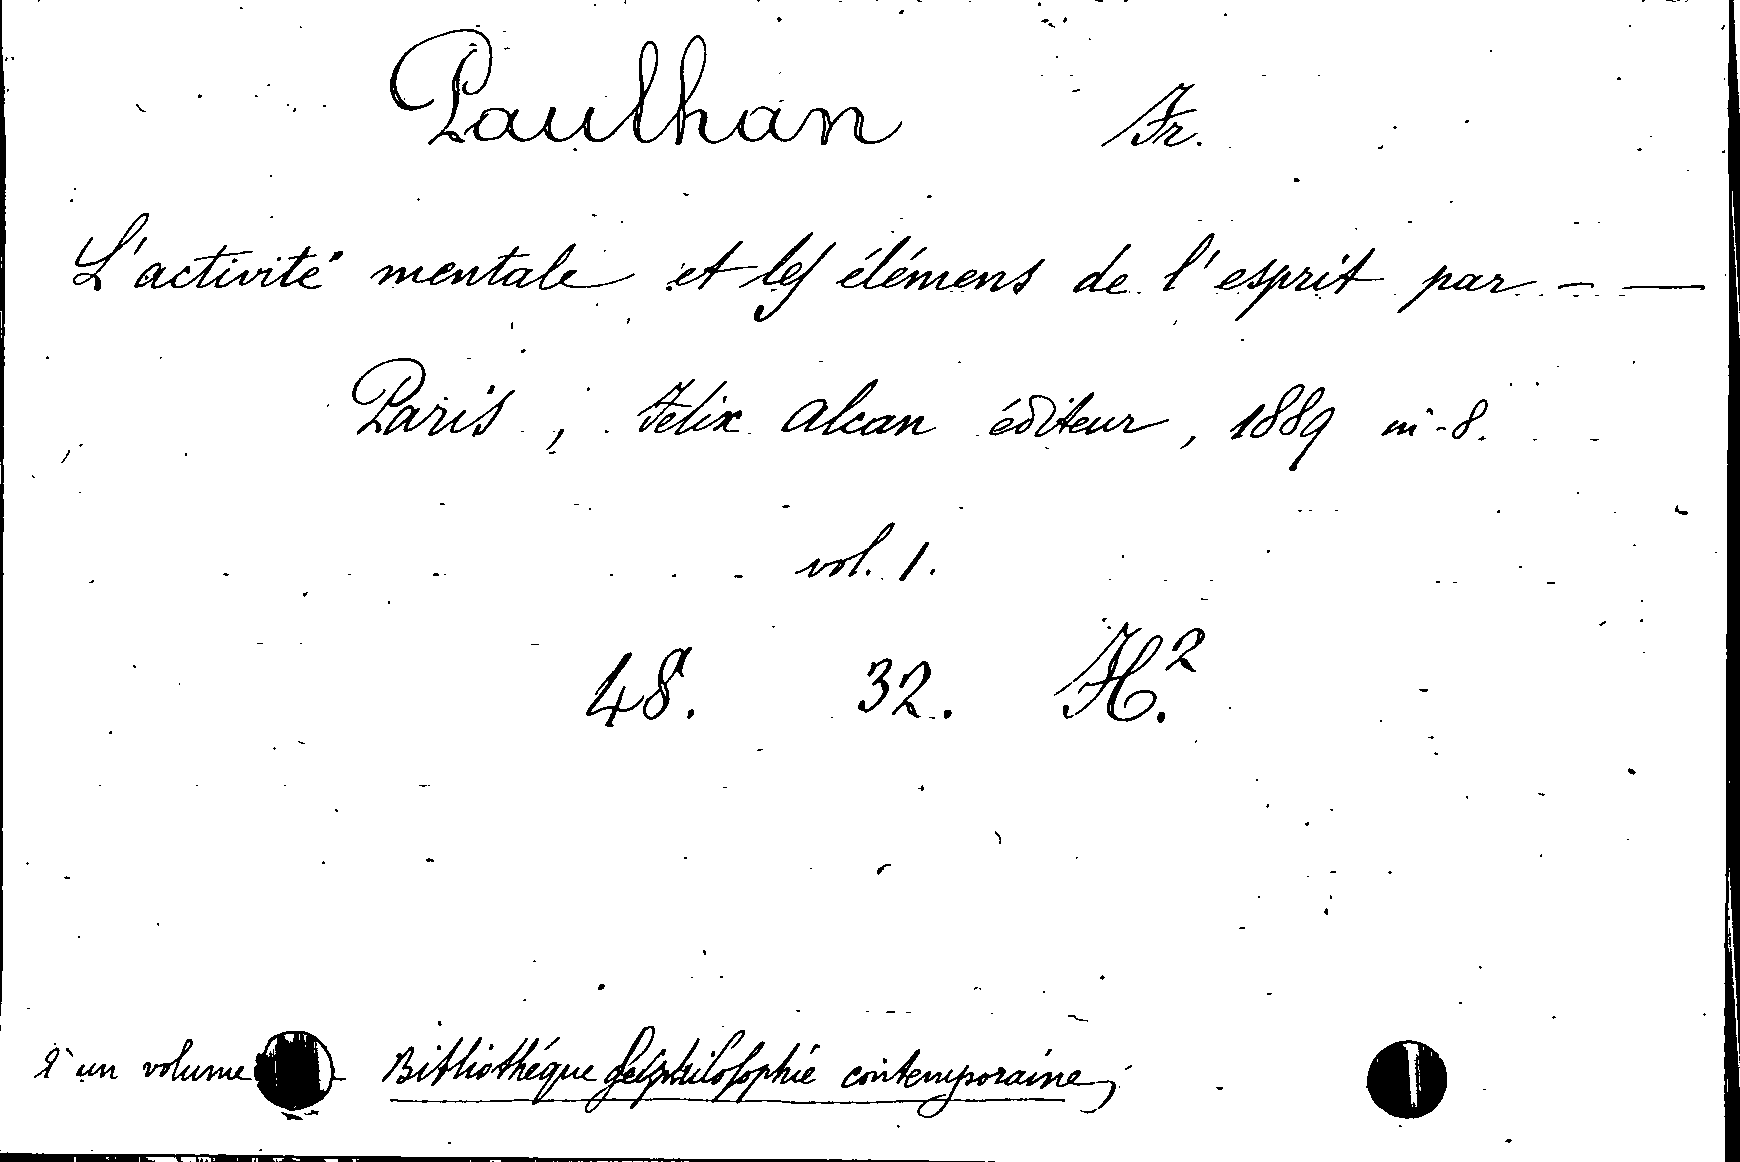 Paulhan Fr.
L'activité mentale et les élémens de l'esprit par - —
Paris, Felix Alcan éditeur, 1889 in-8.
vol. 1.
48. 32. H.²
È un volume Bibliothéque de philosophie contemporaine;